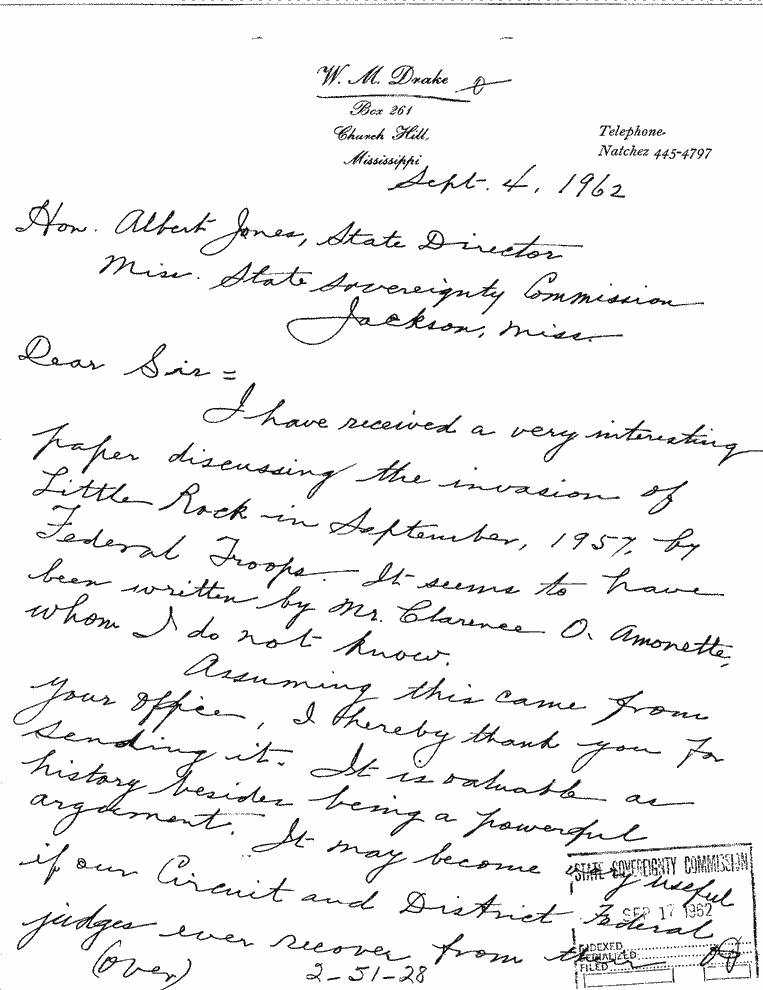 W. M. Drake
Box 261
Church Hill,
Mississippi
Telephone
Natchez 445-4797
Sept. 4, 1962
Hon. Albert Jones, State Director
Miss. State Sovereignty Commission
Jackson, Miss.
Dear Sir =
I have received a very interesting
paper discussing the invasion of
Little Rock in September, 1957, by
Federal Troops. It seems to have
been written by Mr. Clarence O. Amonette,
whom I do not know.
Assuming this came from
your office, I hereby thank you for
sending it. It is valuable as
history besides being a powerful
argument. It may become very useful
if our Circuit and District Federal
judges ever recover from their
(Over)
2-51-28
STATE SOVEREIGNTY COMMISSION
SEP 17 1962
INDEXED
SERIALIZED
FILED